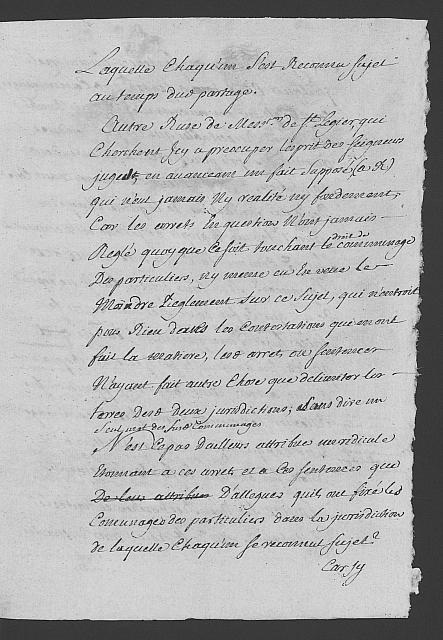 Laquelle Chaqu'un s'est Reconnu sujet
au temps dud partage.
Autre Ruse de Mess.rs de s.t Legier qui
Cherchent Icy a preocuper l'esprit des seigneurs
juges, en avanceant un fait supposé (a &)
qui n'eut jamais Ny realité ny fondement,
Car les arrets En question N'ont jamais
Reglé quoy que Ce soit touchant le droit de communage
Des particuliers, ny meme eu en veue le
Moindre Reglement sur ce sujet, qui n'entroit
pour Rien dans les Contestations qui en ont
fait la matiere, les arrets ou sentences
N'ayant fait autre Chose que delimiter les
terres desd deux jurisdictions, sans dire un
seul mot desd Communages
N'est Ce pas D'ailleurs attribuer un ridicule
Etonnant a ces arrets et a Ces sentences que
De leur attribuer D'alleguer qu'ils ont fixé les
Comunages des particuliers dans la jurisdiction
de laquelle Chaqu'un se reconnut sujet?
Car sy